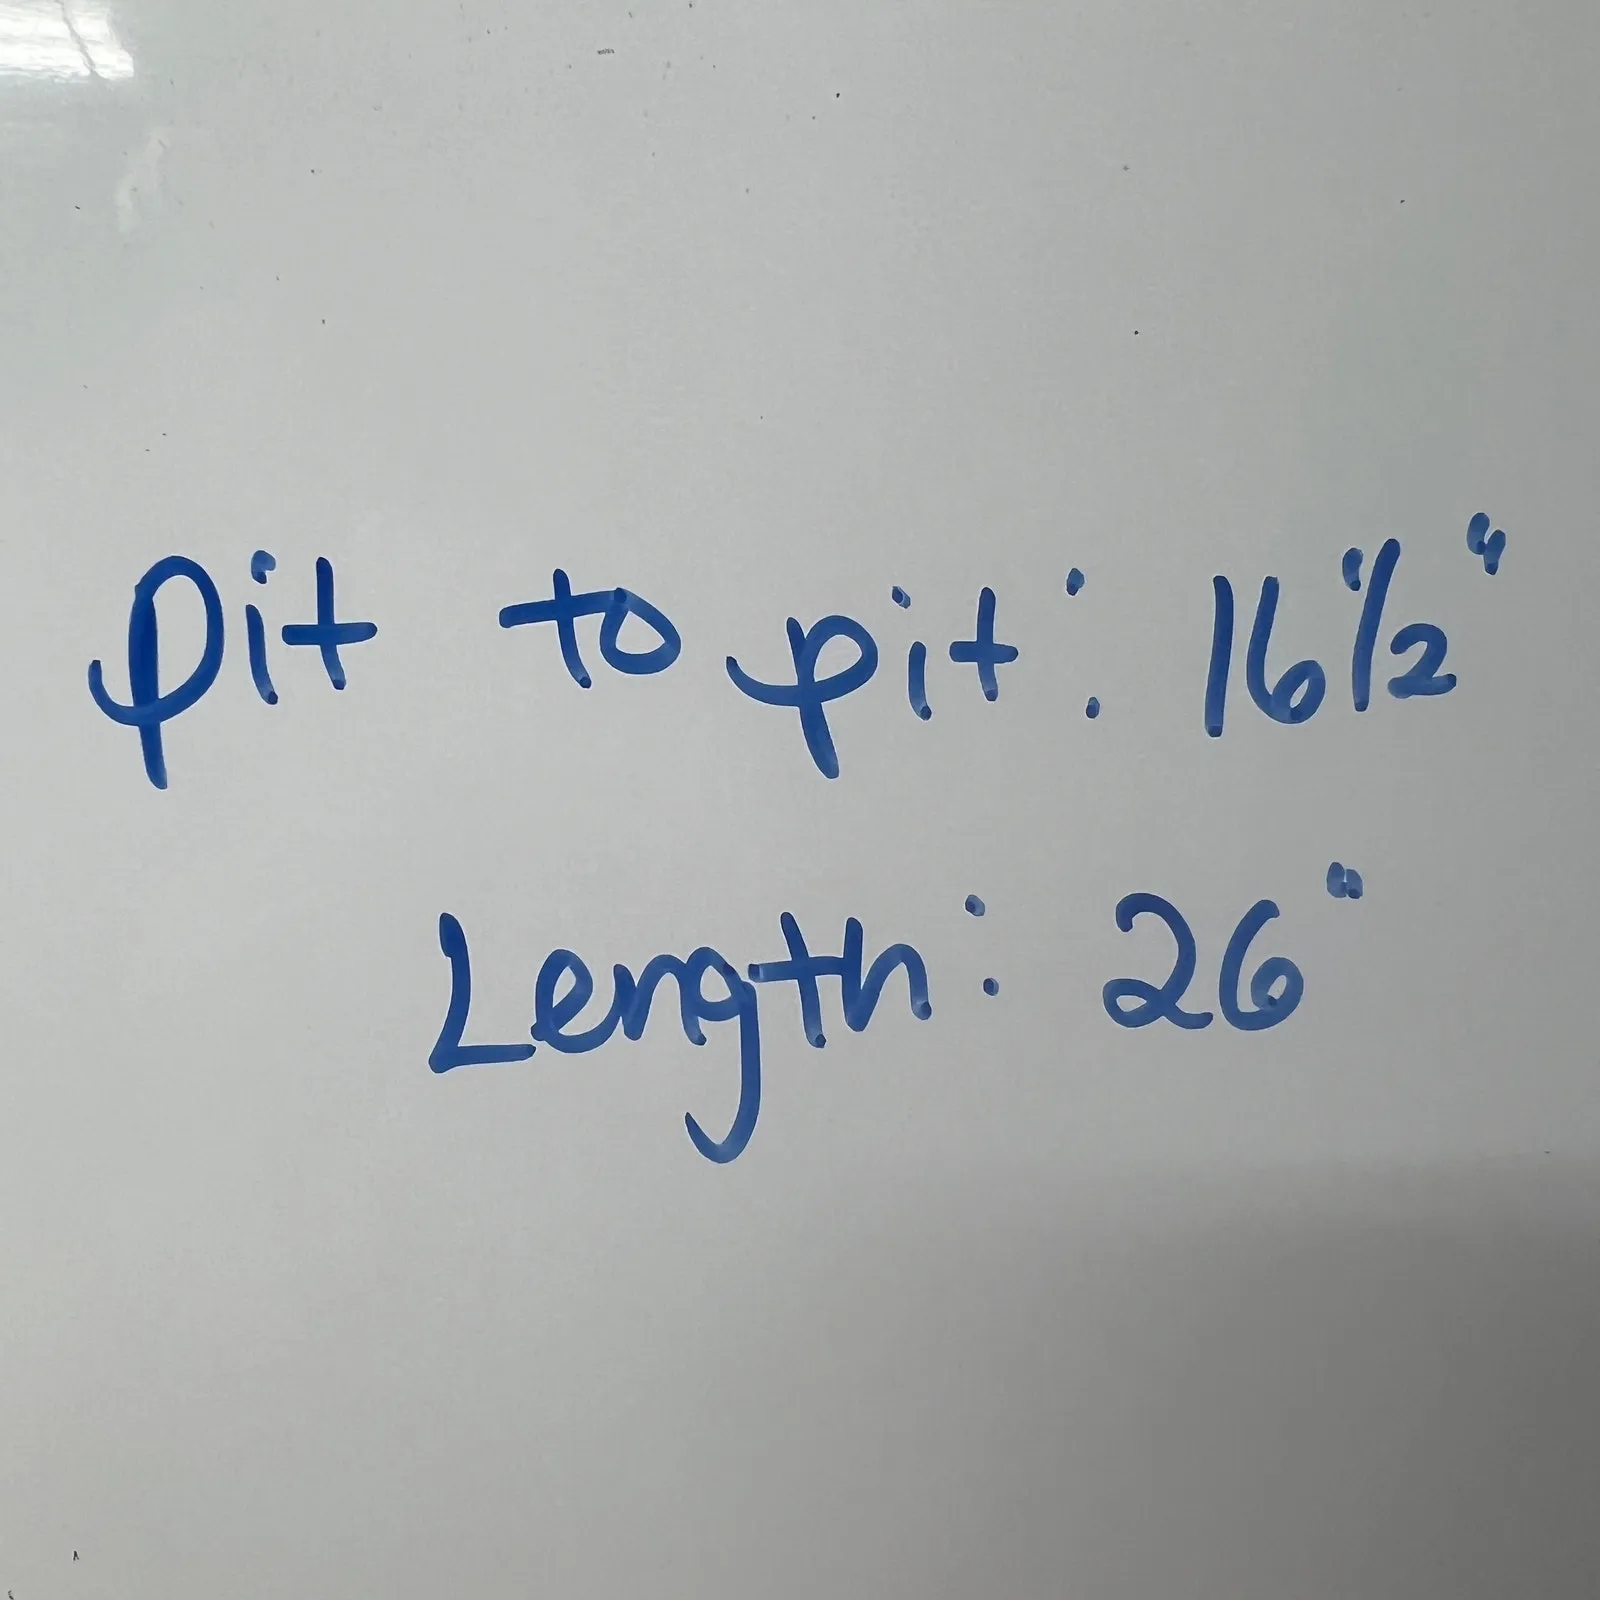 Pit to pit: 16 1/2"
Length: 26"